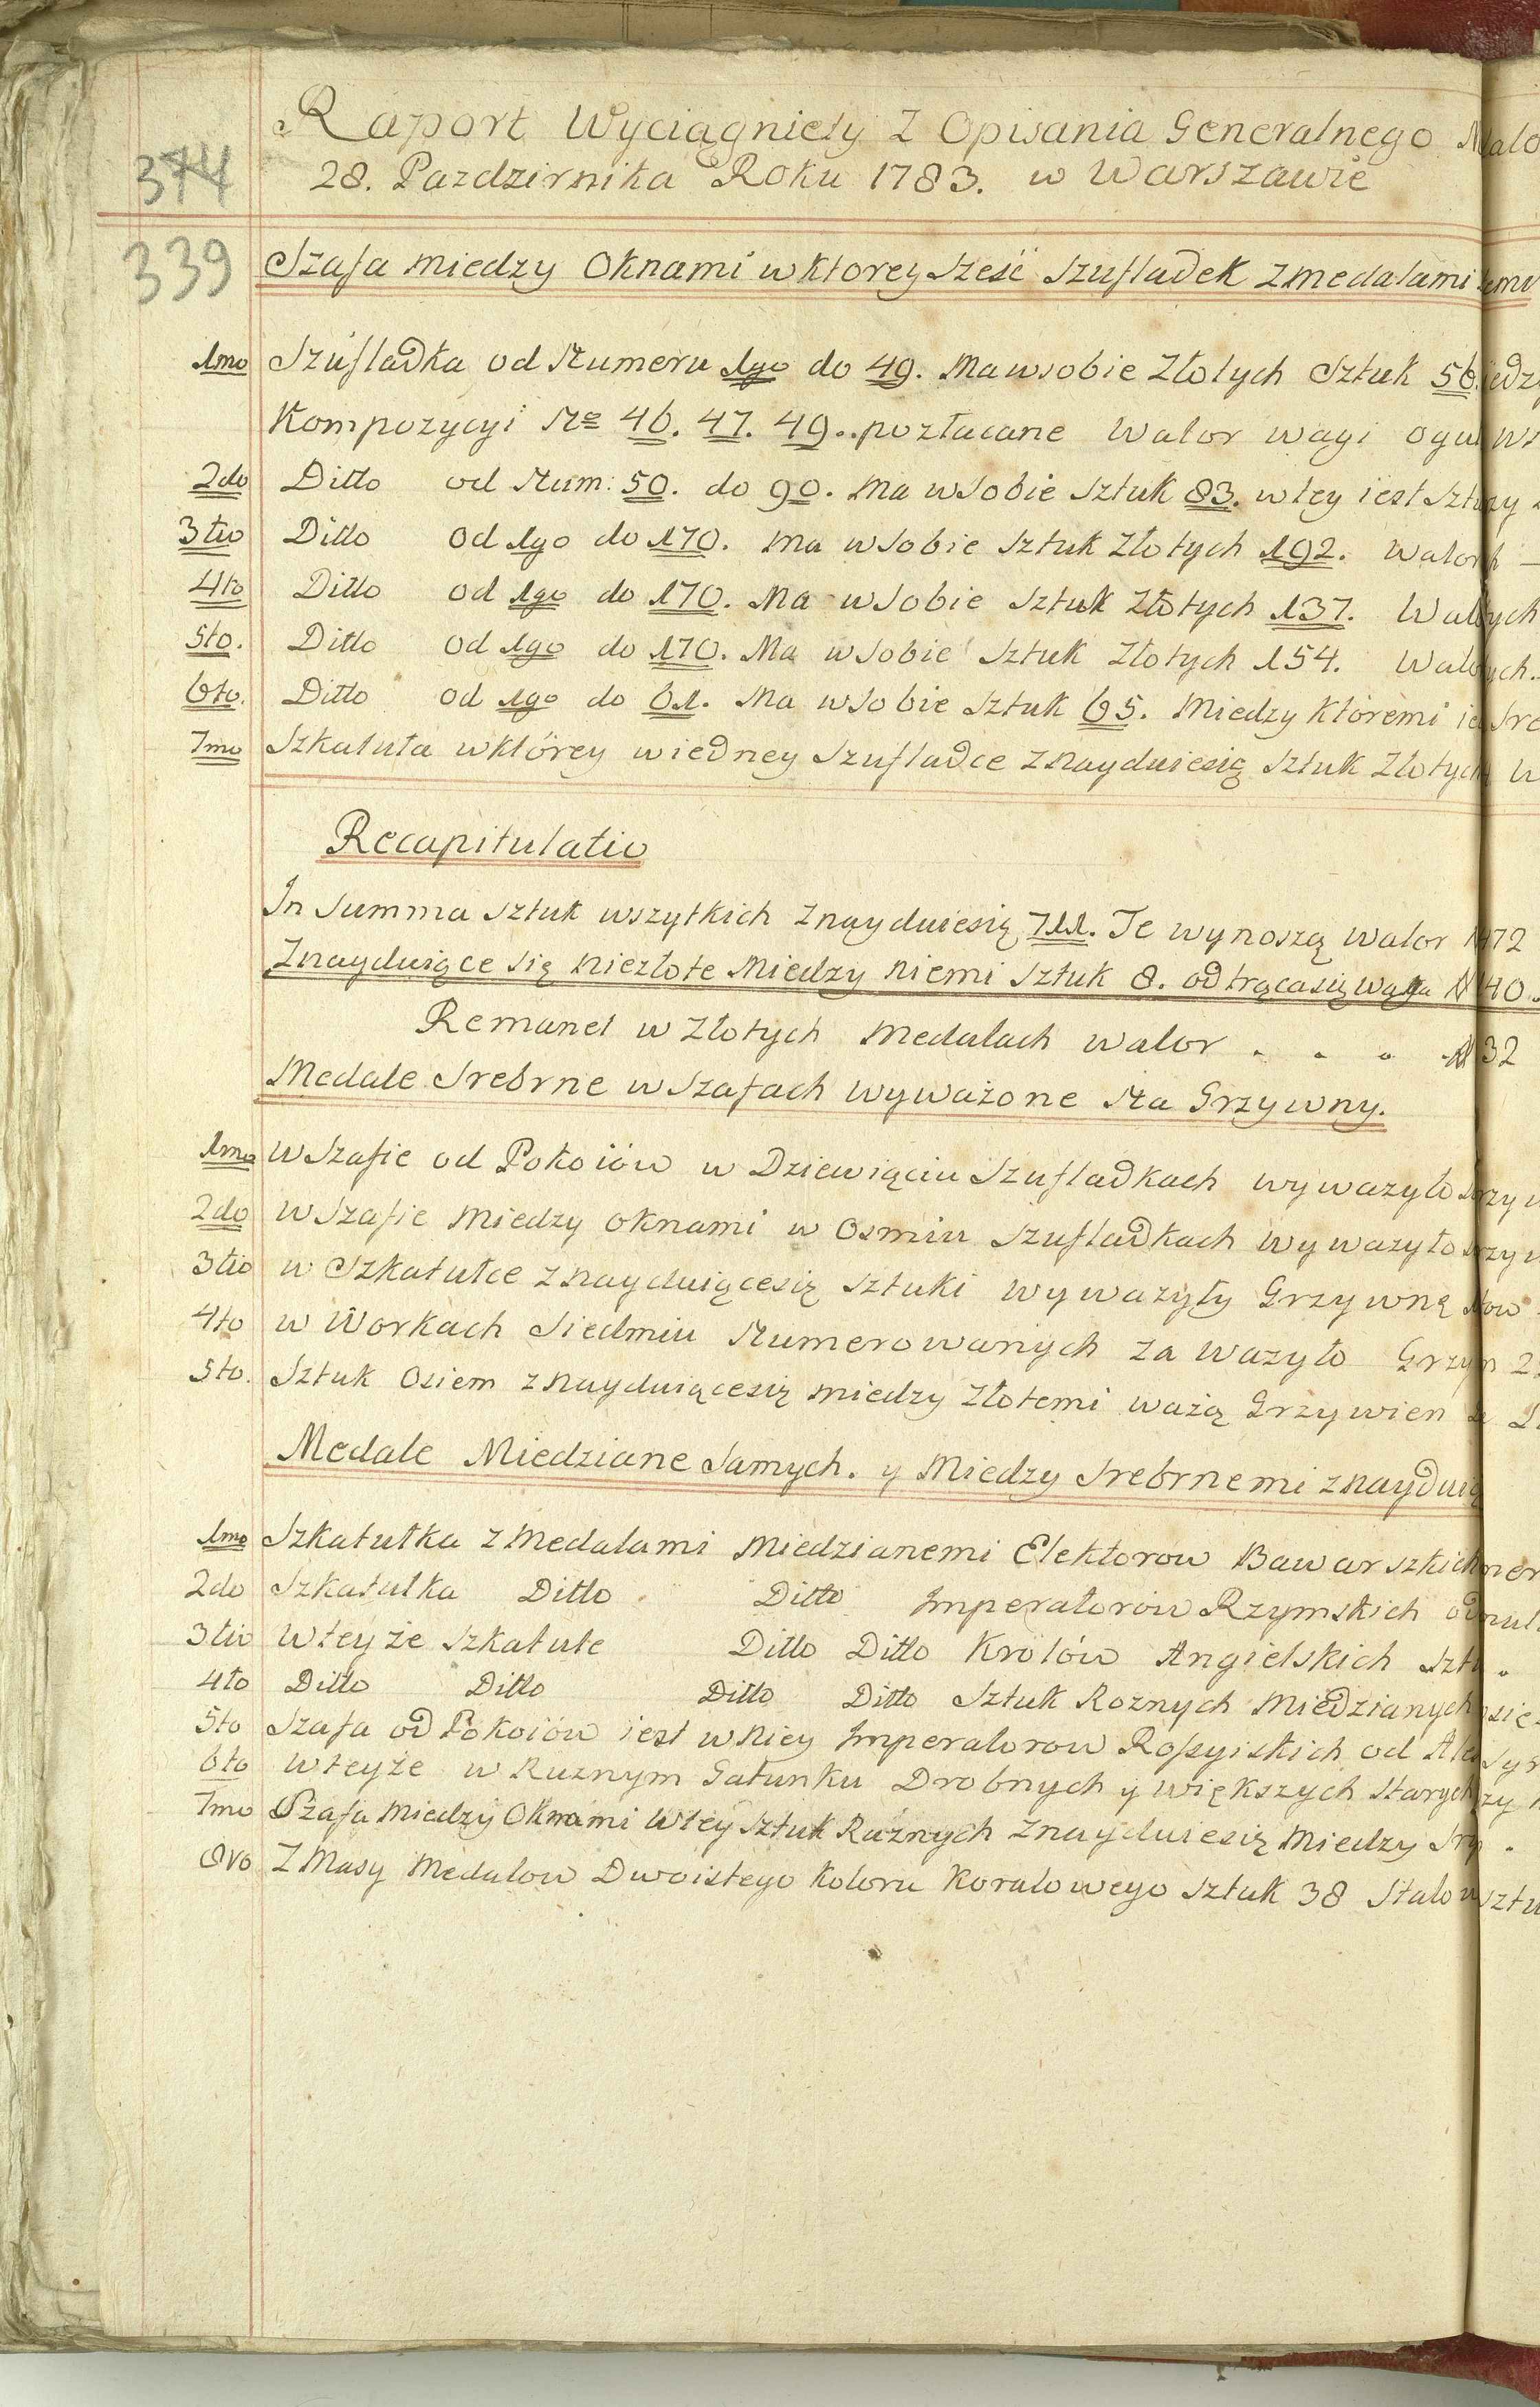 Raport Wyciągniety z Opisania Generalnego
374
28. Pazdziernika Roku 1783. w Warszawie
339
Szafa miedzy Oknami w ktorey sześć szufladek z medalami
1mo Szufladka od Numeru 1go do 49. Ma w sobie Złotych Sztuk 56
Kompozycyi No 46. 47. 49.. pozłacane Walor wagi ogul
2do Ditto od Num: 50. do 90. Ma w sobie Sztuk 83. w tey iest
3tio Ditto od 1go do 170. Ma w sobie Sztuk Złotych 192. Walor
4to Ditto od 1go do 170. Ma w sobie Sztuk Złotych 137.
5to. Ditto od 1go do 170. Ma w sobie Sztuk Złotych 154.
6to. Ditto od 1go do 61. Ma w sobie Sztuk 65. Miedzy ktöremi
7mo Szkatuła w którey w iedney Szufladce znayduiesię Sztuk Złotych
Recapitulatio
In Summa Sztuk wszytkich znayduiesię 711. Te wynoszą walor
Znayduiące się niezłote Miedzy niemi Sztuk 8. odtrącasię waga
Remanet w Złotych Medalach walor
Medale Srebrne w Szafach wyważone Na Grzywny.
1mo w Szafie od Pokoiów w Dziewiąciu Szufladkach wyważyło
2do w Szafie Miedzy oknami w Osmiu Szufladkach wyważyło
3tio w Szkatułce znayduiącesię Sztuki wyważyły Grzywnę
4to w Workach Siedmiu Numerowanych zaważyło
5to. Sztuk Osiem znayduiącesię miedzy Złotemi ważą Grzywien
Medale Miedziane Samych. y Miedzy Srebrnemi
1mo Szkatułka z Medalami Miedzianemi Elektorow Bawarszkich
2do Szkatułka Ditto Ditto Imperatorów Rzymskich
3tio w teyże Szkatule Ditto Ditto Krolów Angielskich
4to Ditto Ditto Ditto Ditto Sztuk Roznych Miedzianych
5to Szafa od Pokoiów iest w niey Imperatorow Rossyiskich od
6to w teyże w Ruznym Gatunku Drobnych y większych Starych
7mo Szafa Miedzy Oknami w tey Sztuk Rużnych znayduiesię Miedzy
8vo Z Masy Medalow Dwoistego Koloru Koralowego Sztuk 38